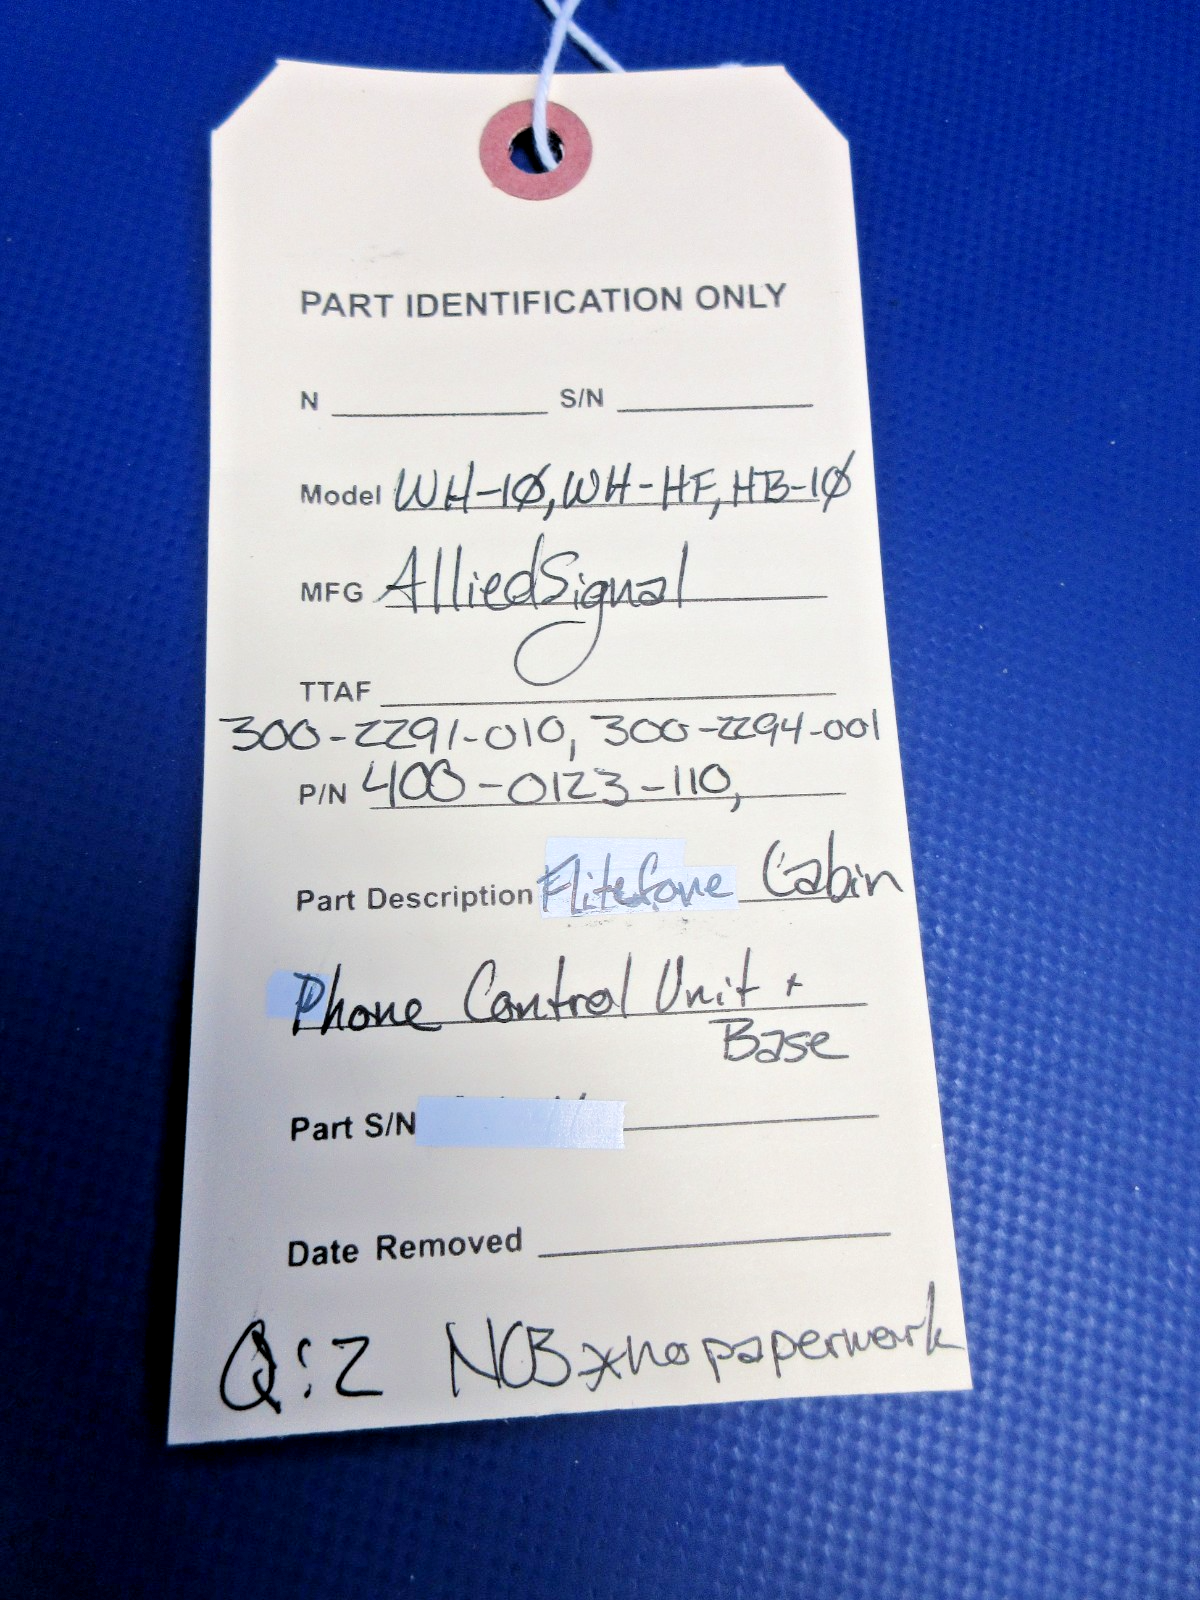 PART IDENTIFICATION ONLY
N S/N
Model WH-1Ø, WH-HF, HB-1Ø
MFG AlliedSignal
TTAF
300-2291-010, 300-2294-001
P/N 400-0123-110,
Part Description Flitefone Cabin
Phone Control Unit +
Base
Part S/N
Date Removed
Q:2 NOB *no paperwork